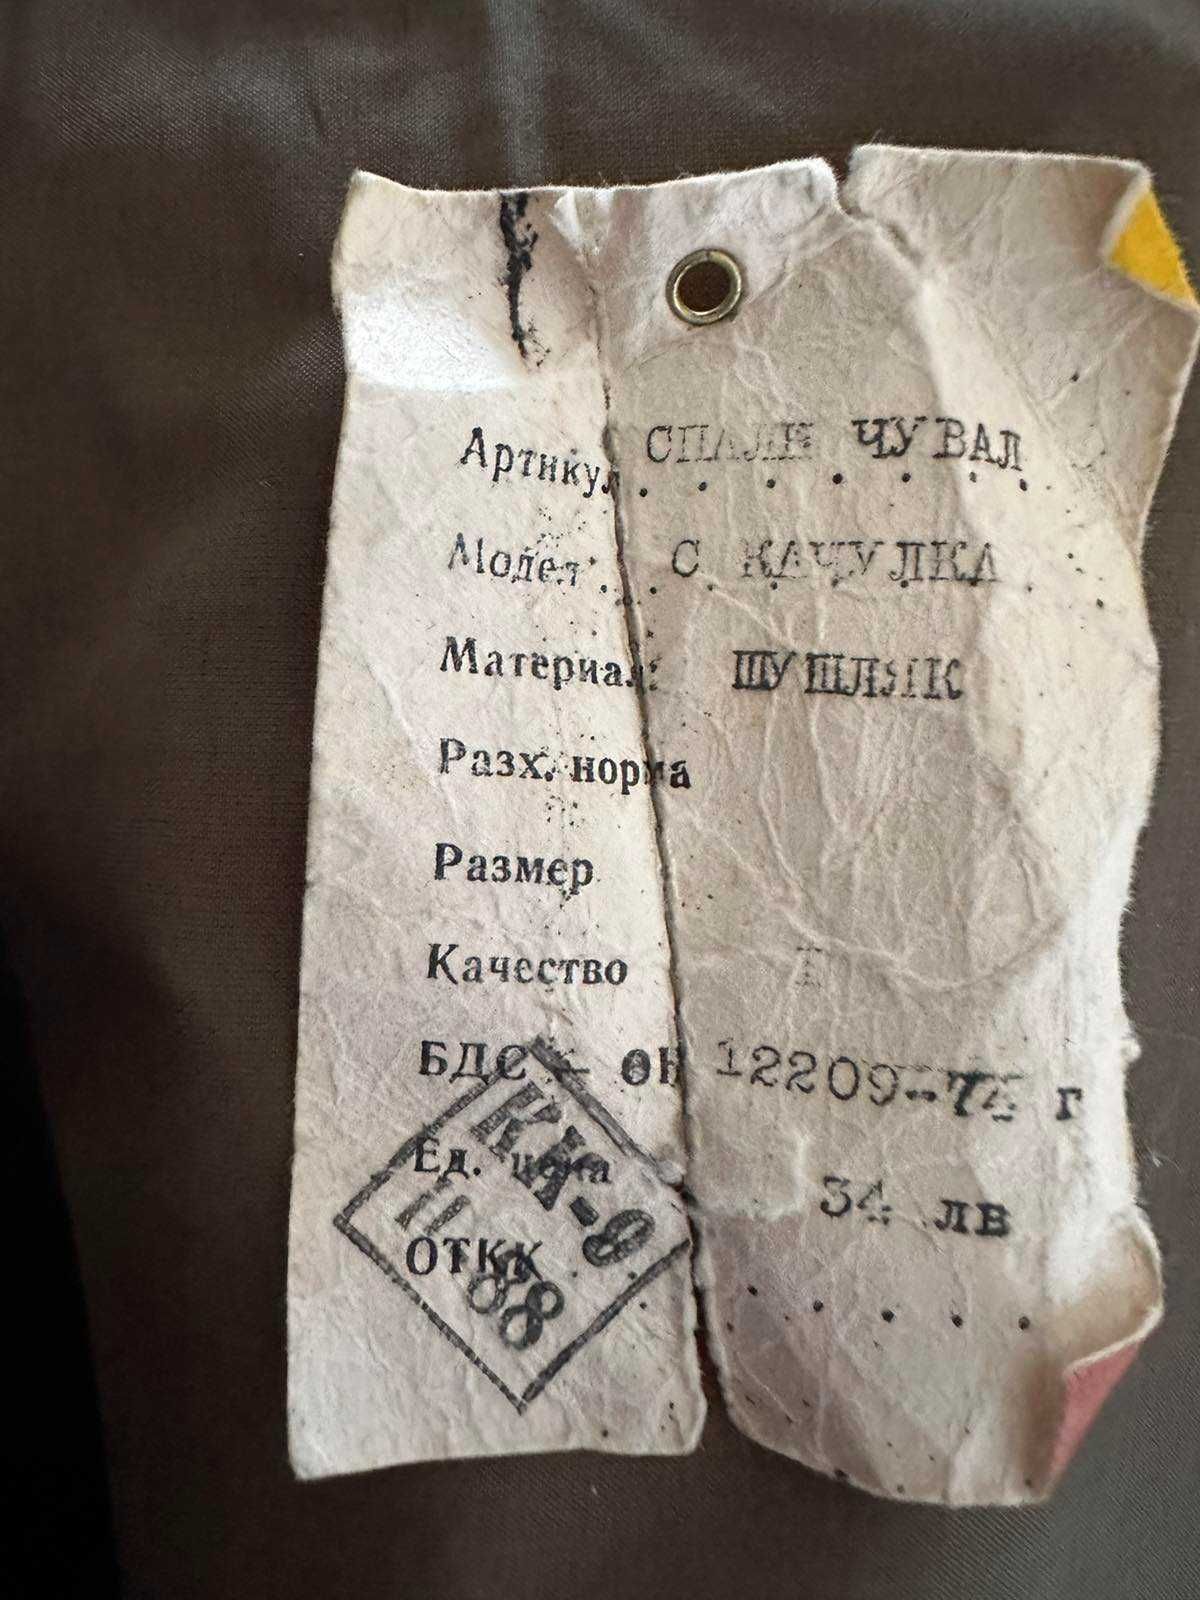 Артикул СПАЛЕН ЧУВАЛ
Модел С КАЧУЛКА
Материал: ШУШЛЯК
Разх. норма
Размер
Качество I
БДС — ОН 12209-74 г
Ед. цена 34 лв
ОТКК
КК-9
II 88